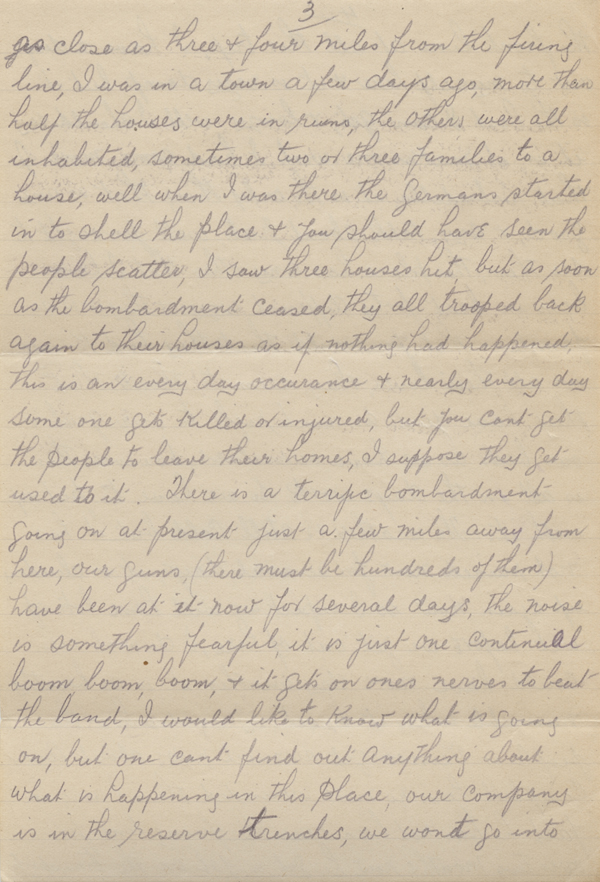 3
as close as three & four miles from the firing
line, I was in a town a few days ago, more than
half the houses were in ruins, the others were all
inhabited, sometimes two or three families to a
house, well when I was there the Germans started
in to shell the place & you should have seen the
people scatter, I saw three houses hit, but as soon
as the bombardment ceased, they all trooped back
again to their houses as if nothing had happened,
this is an every day occurance & nearly every day
some one gets killed or injured, but you cant get
the people to leave their homes, I suppose they get
used to it. There is a terrific bombardment
going on at present just a few miles away from
here, our guns, (there must be hundreds of them)
have been at it now for several days, the noise
is something fearful, it is just one continual
boom, boom, boom, & it gets on ones nerves to beat
the band, I would like to know what is going
on, but one cant find out anything about
what is happening in this place, our company
is in the reserve trenches, we wont go into